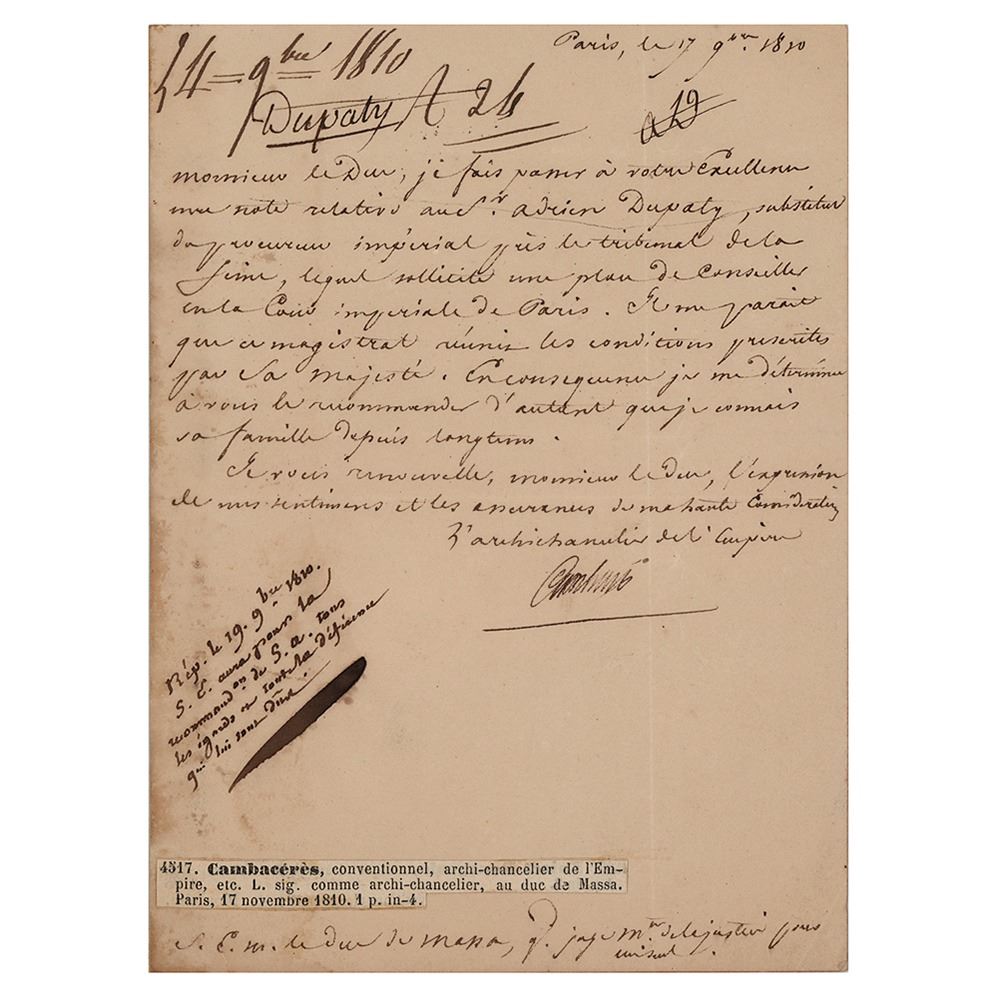 Paris, le 17 9bre. 1810
24 = 9bre 1810
Dupaty A 26
a 19
monsieur le Duc, je fais passer à votre Excellence
une note relative au Sr. adrien Dupaty, substitut
du procureur impérial près le tribunal de la
Seine, lequel sollicite une place de Conseiller
en la Cour impériale de Paris. Il me parait
que ce magistrat réunit les conditions prescrites
par Sa Majesté. En conséquence je me détermine
à vous le recommander d'autant que je connais
sa famille depuis longtems.
Je vous renouvelle, monsieur le Duc, l'expression
de mes sentimens et les assurances de ma haute Considération
L'archichancelier de l'Empire
Cambacérès
Rép. le 19. 9bre 1810.
S. E. aura pour la
recommandon de S. a. tous
les égards et toute la déférence
qui lui sont dûs.
4517. Cambacérès, conventionnel, archi-chancelier de l'Em-
pire, etc. L. sig. comme archi-chancelier, au duc de Massa.
Paris, 17 novembre 1810. 1 p. in-4.
S. E. M. le Duc de Massa, gd. juge Mtre de la justice